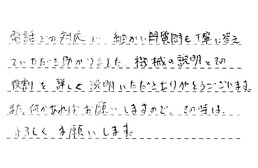 電話での対応で 細かい質問も丁寧に答え
ていただき助かりました。機械の説明とその
役割を詳しく説明いただきありがとうございます。
また、何かあればお願いしますので、その時は
よろしくお願いします。